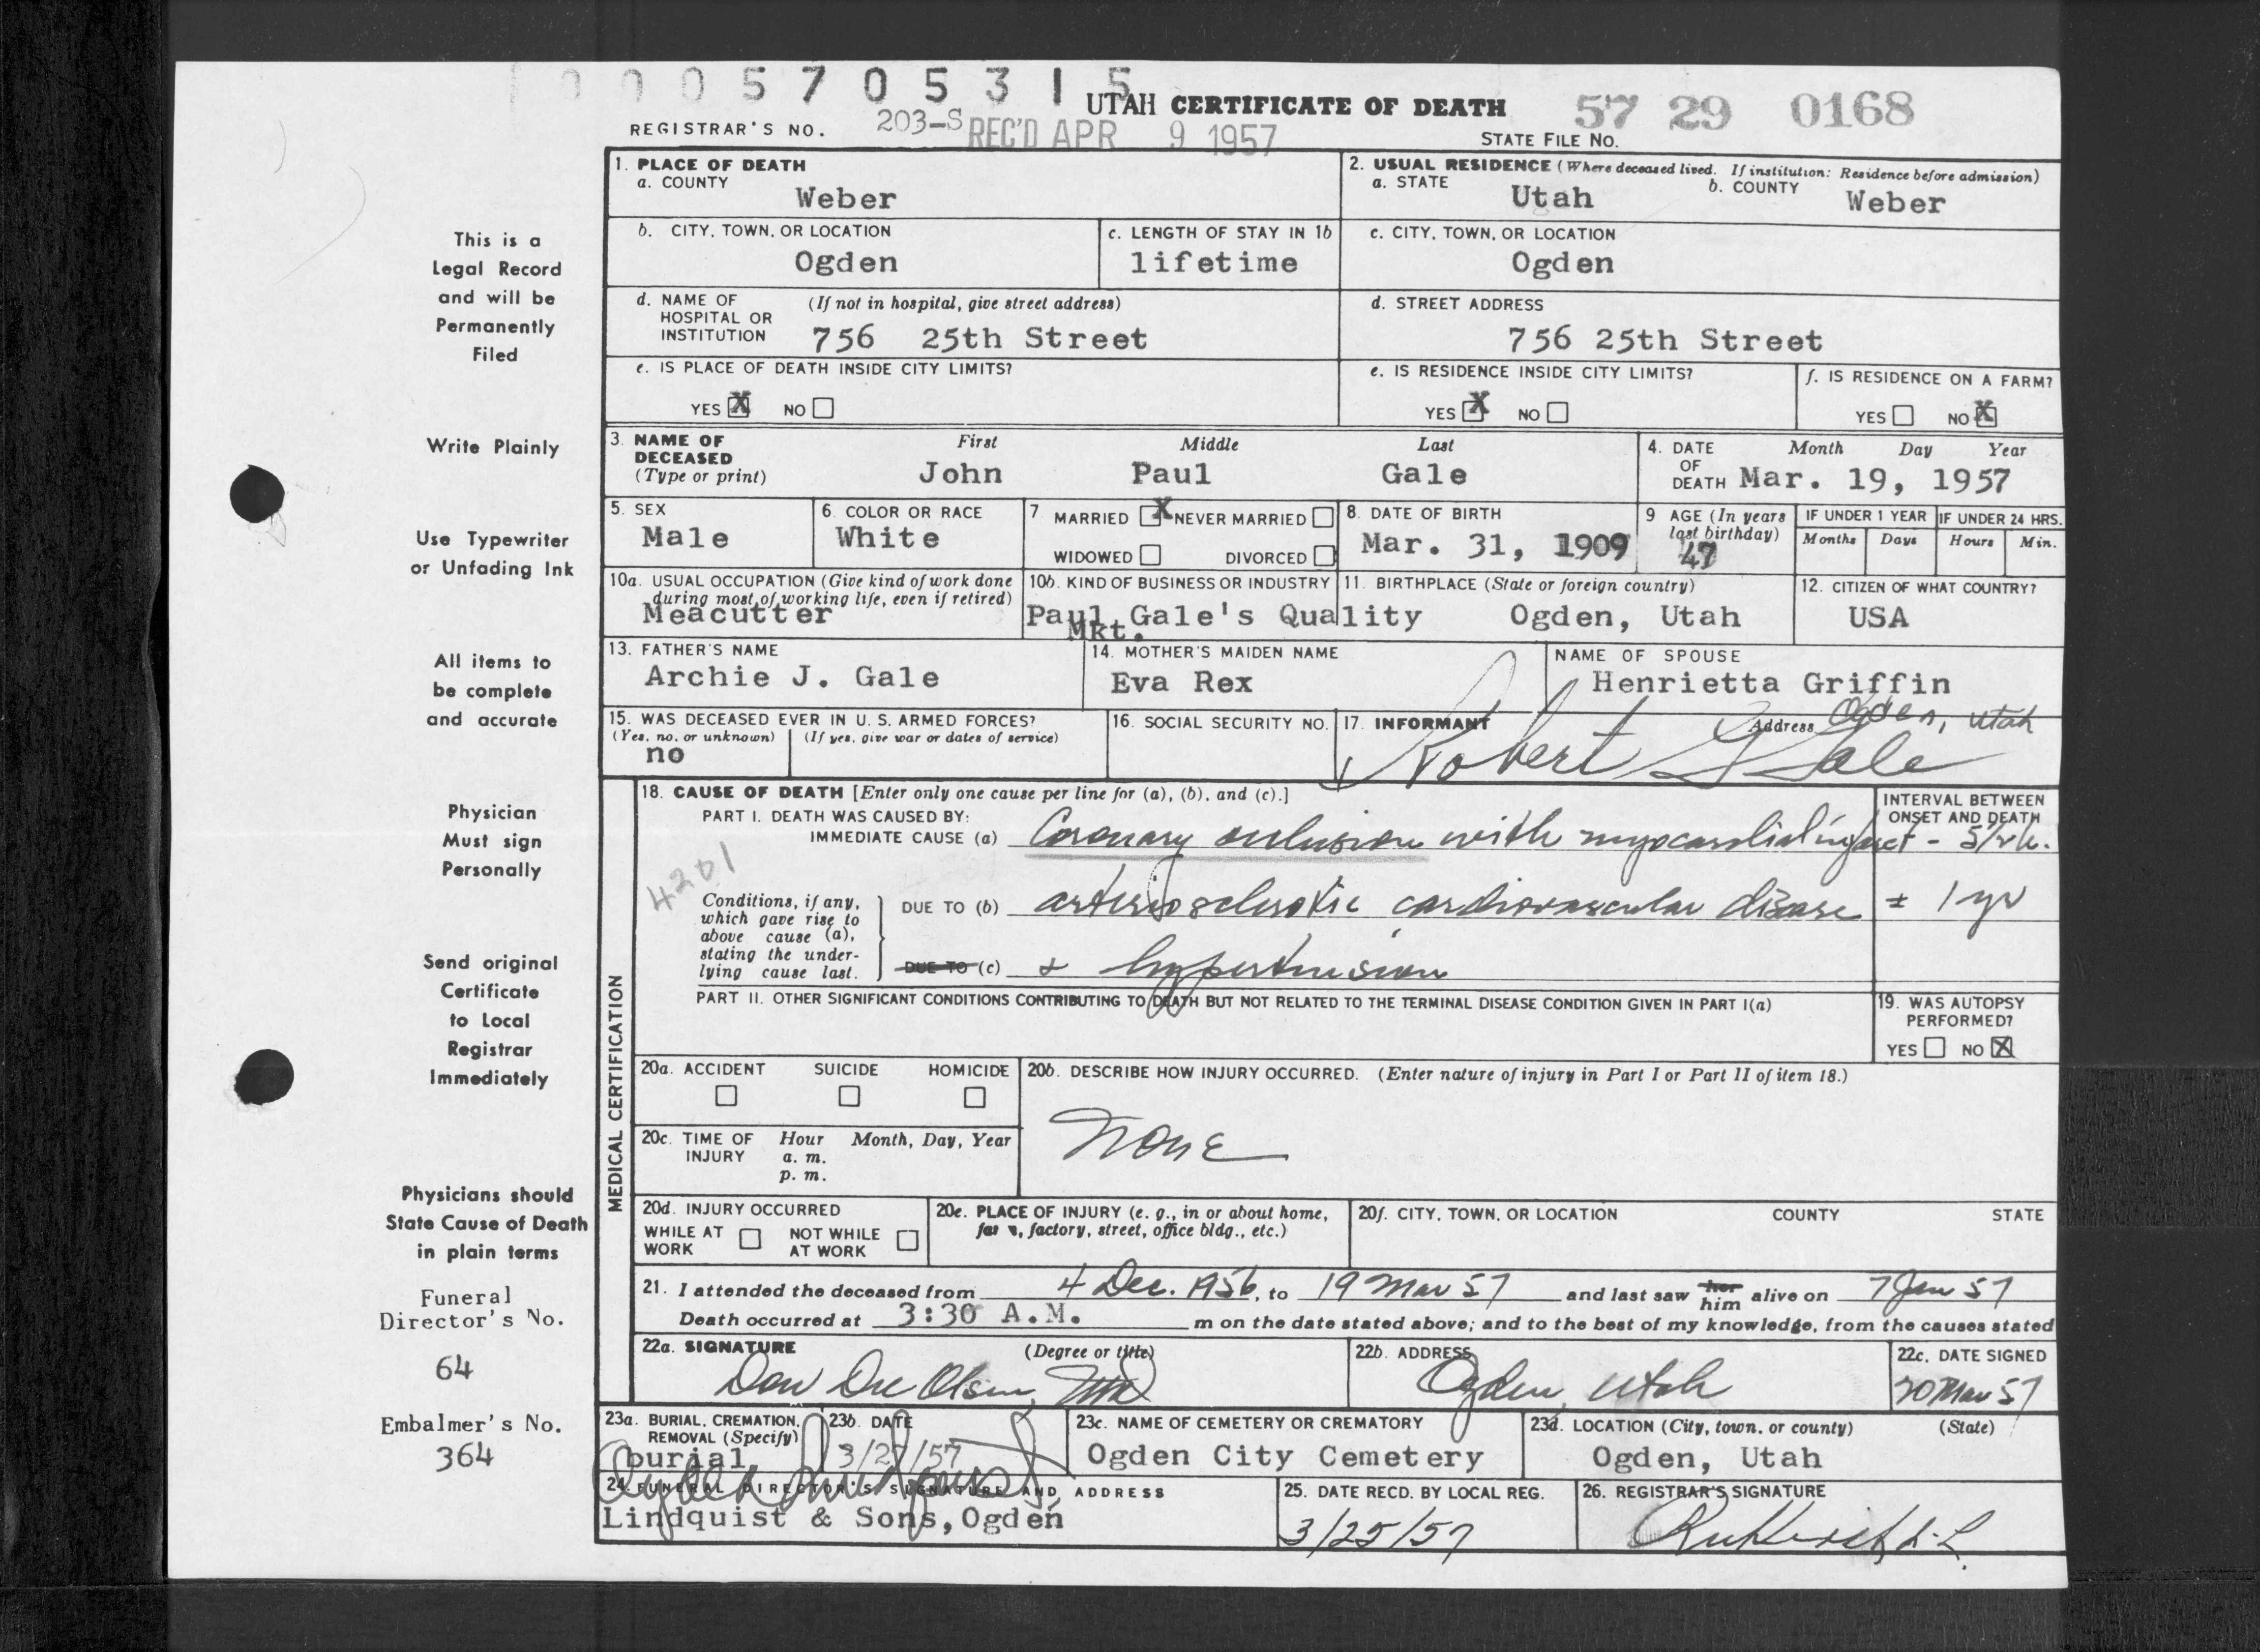 0 0 0 5 7 0 5 3 1 5
UTAH CERTIFICATE OF DEATH
57 29 0168
REGISTRAR'S NO. 203-S REC'D APR 9 1957 STATE FILE No.
1. PLACE OF DEATH
a. COUNTY
Weber
2. USUAL RESIDENCE (Where deceased lived. If institution: Residence before admission)
a. STATE Utah b. COUNTY Weber
b. CITY, TOWN, OR LOCATION
Ogden
c. LENGTH OF STAY IN 1b
lifetime
c. CITY, TOWN, OR LOCATION
Ogden
d. NAME OF HOSPITAL OR INSTITUTION (If not in hospital, give street address)
756 25th Street
d. STREET ADDRESS
756 25th Street
e. IS PLACE OF DEATH INSIDE CITY LIMITS?
YES X NO
e. IS RESIDENCE INSIDE CITY LIMITS?
YES X NO
f. IS RESIDENCE ON A FARM?
YES NO X
3. NAME OF DECEASED (Type or print)
First Middle Last
John Paul Gale
4. DATE OF DEATH Month Day Year
Mar. 19, 1957
5. SEX
Male
6. COLOR OR RACE
White
7 MARRIED X NEVER MARRIED
WIDOWED DIVORCED
8. DATE OF BIRTH
Mar. 31, 1909
9 AGE (In years last birthday)
47
IF UNDER 1 YEAR
Months Days
IF UNDER 24 HRS.
Hours Min.
10a. USUAL OCCUPATION (Give kind of work done during most of working life, even if retired)
Meacutter
10b. KIND OF BUSINESS OR INDUSTRY
Paul Gale's Quality
Mkt.
11. BIRTHPLACE (State or foreign country)
Ogden, Utah
12. CITIZEN OF WHAT COUNTRY?
USA
13. FATHER'S NAME
Archie J. Gale
14. MOTHER'S MAIDEN NAME
Eva Rex
NAME OF SPOUSE
Henrietta Griffin
15. WAS DECEASED EVER IN U. S. ARMED FORCES?
(Yes, no, or unknown) (If yes, give war or dates of service)
no
16. SOCIAL SECURITY NO.
17. INFORMANT Address Ogden, Utah
Robert G Gale
MEDICAL CERTIFICATION
18. CAUSE OF DEATH [Enter only one cause per line for (a), (b), and (c).]
PART I. DEATH WAS CAUSED BY:
IMMEDIATE CAUSE (a) Coronary occlusion with myocardial infarct -
INTERVAL BETWEEN ONSET AND DEATH
4201
Conditions, if any, which gave rise to above cause (a), stating the underlying cause last.
DUE TO (b) arteriosclerotic cardiovascular disease ± 1 yr
DUE TO (c) & hypertension
PART II. OTHER SIGNIFICANT CONDITIONS CONTRIBUTING TO DEATH BUT NOT RELATED TO THE TERMINAL DISEASE CONDITION GIVEN IN PART I(a)
19. WAS AUTOPSY PERFORMED?
YES NO X
20a. ACCIDENT SUICIDE HOMICIDE
20b. DESCRIBE HOW INJURY OCCURRED. (Enter nature of injury in Part I or Part II of item 18.)
None
20c. TIME OF INJURY Hour Month, Day, Year
a. m.
p. m.
20d. INJURY OCCURRED
WHILE AT WORK NOT WHILE AT WORK
20e. PLACE OF INJURY (e. g., in or about home, farm, factory, street, office bldg., etc.)
20f. CITY, TOWN, OR LOCATION COUNTY STATE
21. I attended the deceased from 4 Dec. 1956, to 19 Mar 57 and last saw her him alive on 7 Jan 57
Death occurred at 3:30 A.M. m on the date stated above; and to the best of my knowledge, from the causes stated
22a. SIGNATURE (Degree or title)
Don Dee Olsen, MD
22b. ADDRESS
Ogden, Utah
22c. DATE SIGNED
20 Mar 57
23a. BURIAL, CREMATION, REMOVAL (Specify)
burial
23b. DATE
3/27/57
23c. NAME OF CEMETERY OR CREMATORY
Ogden City Cemetery
23d. LOCATION (City, town, or county) (State)
Ogden, Utah
24. FUNERAL DIRECTOR'S SIGNATURE AND ADDRESS
Lindquist & Sons, Ogden
25. DATE RECD. BY LOCAL REG.
3/25/57
26. REGISTRAR'S SIGNATURE
This is a
Legal Record
and will be
Permanently
Filed
Write Plainly
Use Typewriter
or Unfading Ink
All items to
be complete
and accurate
Physician
Must sign
Personally
Send original
Certificate
to Local
Registrar
Immediately
Physicians should
State Cause of Death
in plain terms
Funeral
Director's No.
64
Embalmer's No.
364